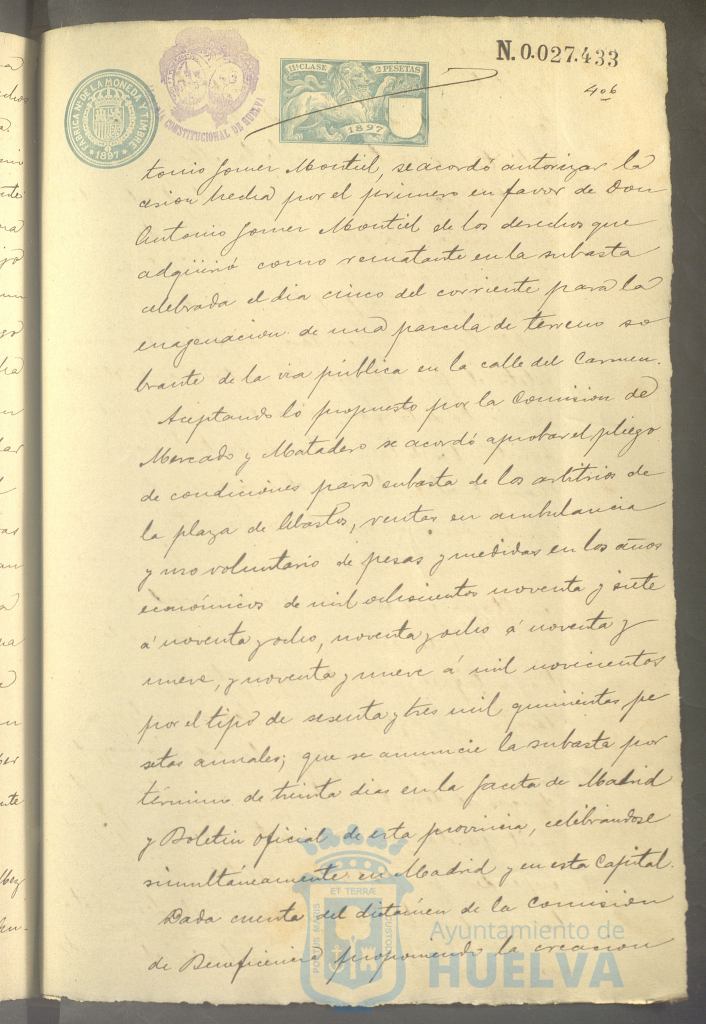 N.0.027.433
406
11ª CLASE 2 PESETAS
1897
FABRICA Nal DE LA MONEDA Y TIMBRE
1897
CONSTITUCIONAL DE HUELVA
tonio Gomez Montiel, se acordó autorizar la
cesion hecha por el primero en favor de Don
Antonio Gomez Montiel de los derechos que
adquirió como rematante en la subasta
celebrada el dia cinco del corriente para la
enagenacion de una parcela de terreno so
brante de la via pública en la calle del Carmen.
Aceptando lo propuesto por la Comision de
Mercado y Matadero se acordó aprobar el pliego
de condiciones para subasta de los arbitrios de
la plaza de Abastos, ventas en ambulancia
y uso voluntario de pesas y medidas en los años
económicos de mil ochocientos noventa y siete
á noventa y ocho, noventa y ocho á noventa y
nueve, y noventa y nueve á mil novecientos
por el tipo de sesenta y tres mil quinientas pe
setas annales; que se anuncie la subasta por
término de treinta dias en la Gaceta de Madrid
y Boletin oficial de esta provincia, celebrandose
simultáneamente en Madrid y en esta Capital.
Dada cuenta del dictámen de la Comision
de Beneficencia proponiendo la creacion
ET TERRÆ
PORTUS MARIS
CUSTODIA
Ayuntamiento de
HUELVA